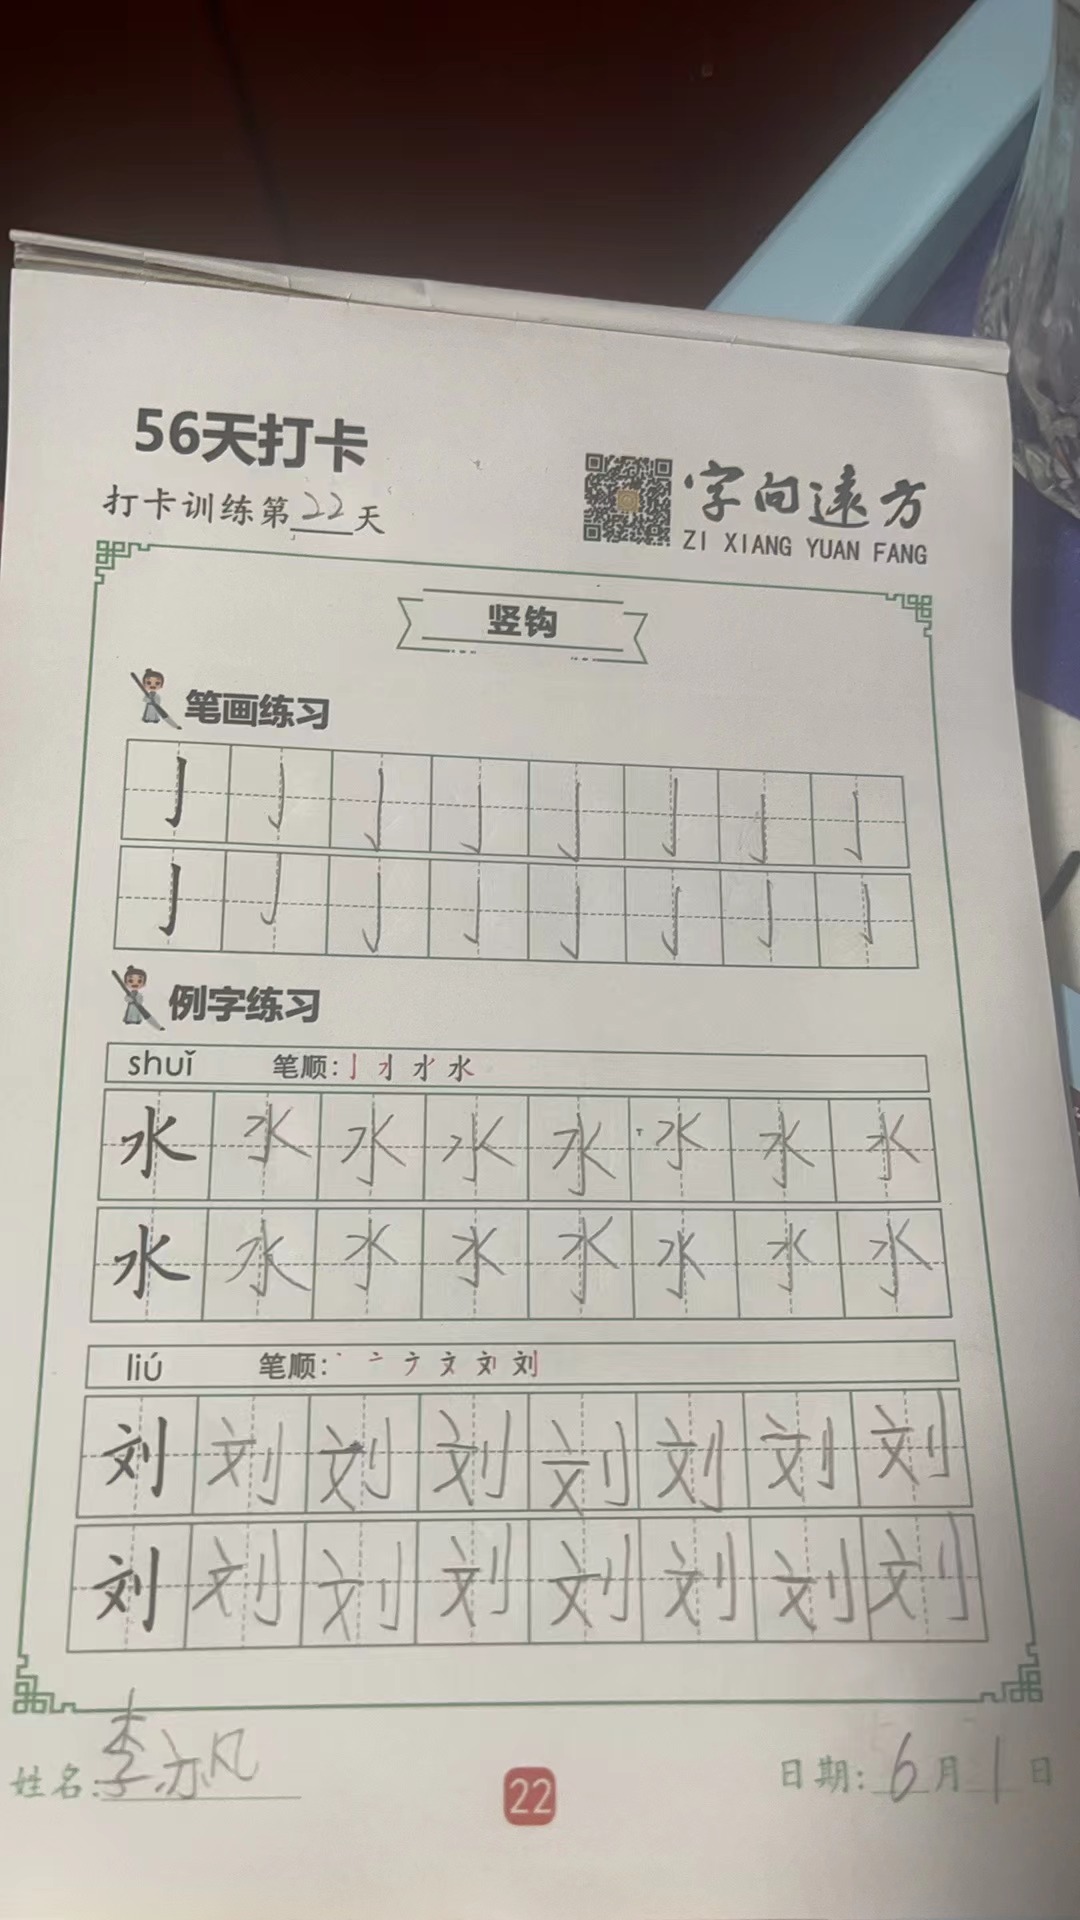 56天打卡
打卡训练第22天
字向远方
ZI XIANG YUAN FANG
竖钩
笔画练习
亅 亅 亅 亅 亅 亅 亅 亅
亅 亅 亅 亅 亅 亅 亅 亅
例字练习
shuǐ 笔顺:
水 水 水 水 水 水 水 水
水 水 水 水 水 水 水 水
liú 笔顺:
刘 刘 刘 刘 刘 刘 刘 刘
刘 刘 刘 刘 刘 刘 刘 刘
姓名:李亦凡
22
日期:6月1日